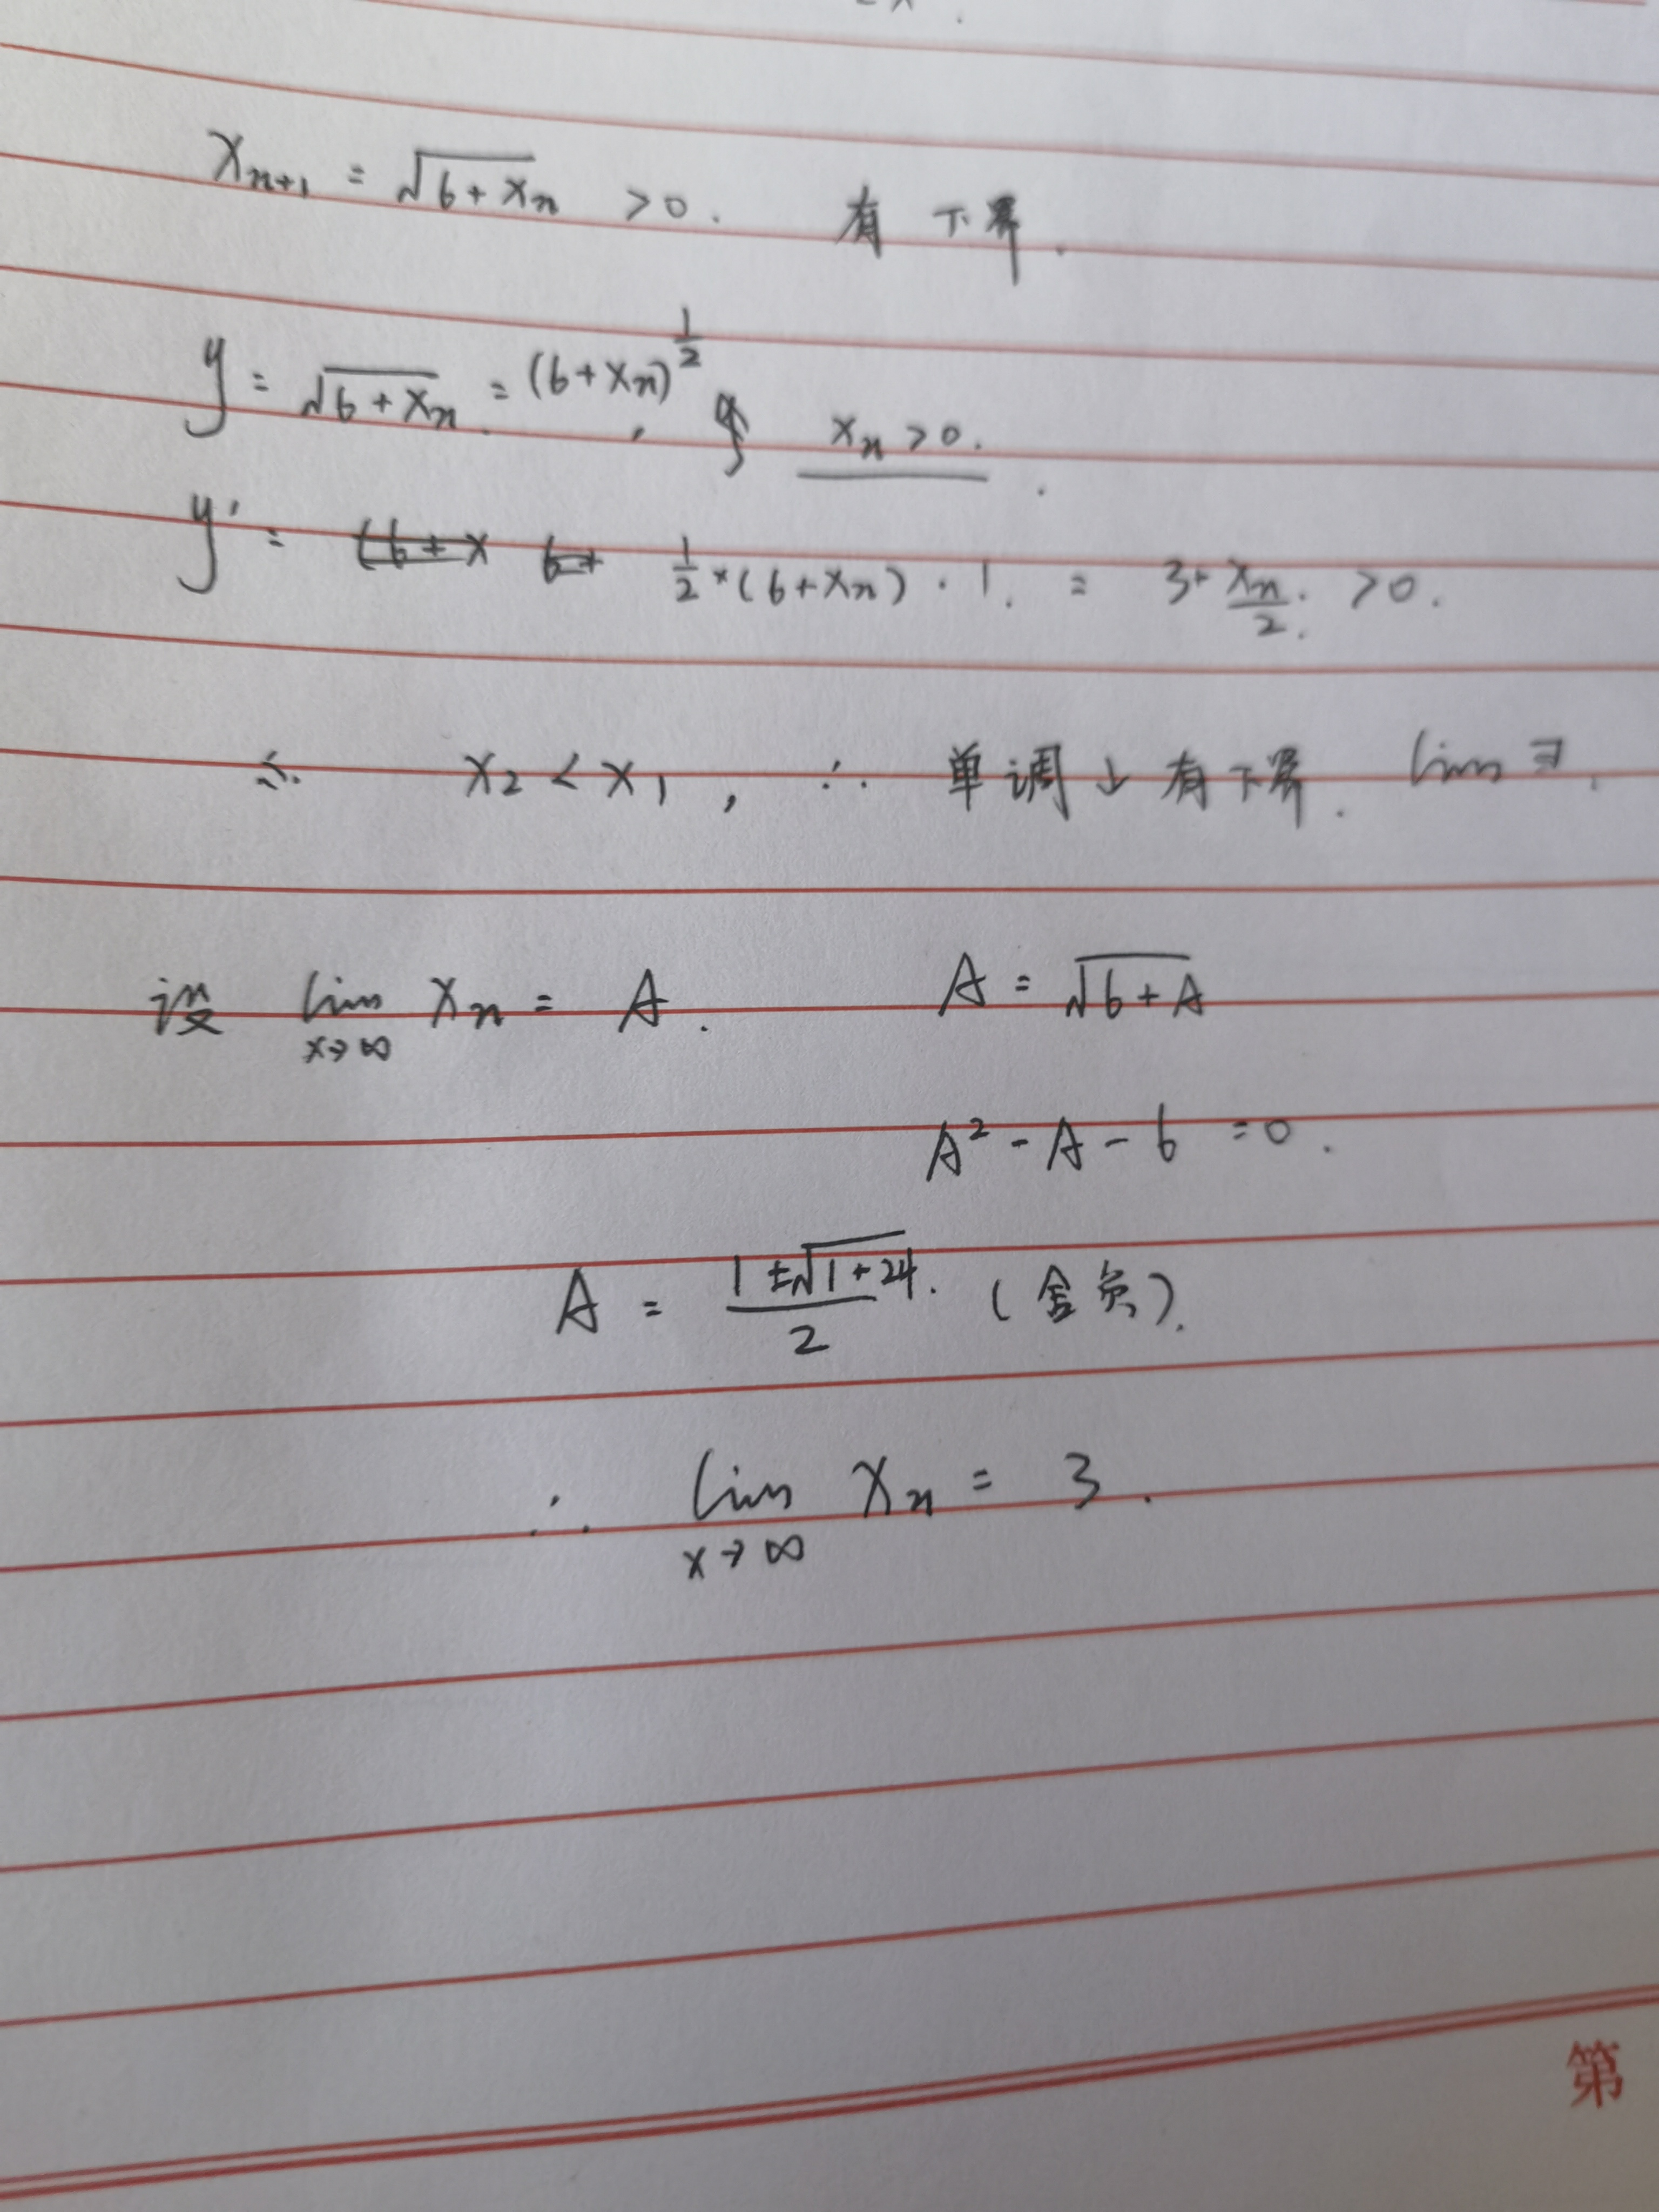 Xn+1 = √6+Xn >0. 有下界.
y = √6+Xn. = (6+Xn)^1/2, Xn >0.
y' = 1/2 × (6+Xn) · 1. = 3+Xn/2. >0.
∴ X2 < X1, ∴ 单调↓有下界. lim ∃.
设 lim x→∞ Xn = A. A = √6+A
A² - A - 6 = 0.
A = 1±√1+24/2. (舍负).
∴ lim x→∞ Xn = 3.
第